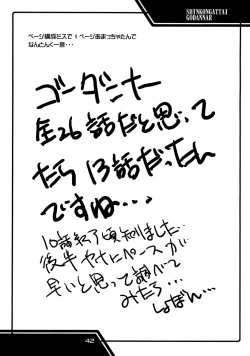 SHINKONGATTAI
GODANNAR
ページ構成ミスで1ページあまっちゃたんで
なんとんくー言・・・
ゴーダンナー
全26話だと思って
たら13話だったん
ですね・・・
10話終了頃知りました・・
後半ヤケにペースが
早いと思って調べて
みたら・・・
しょぼん・・・
42